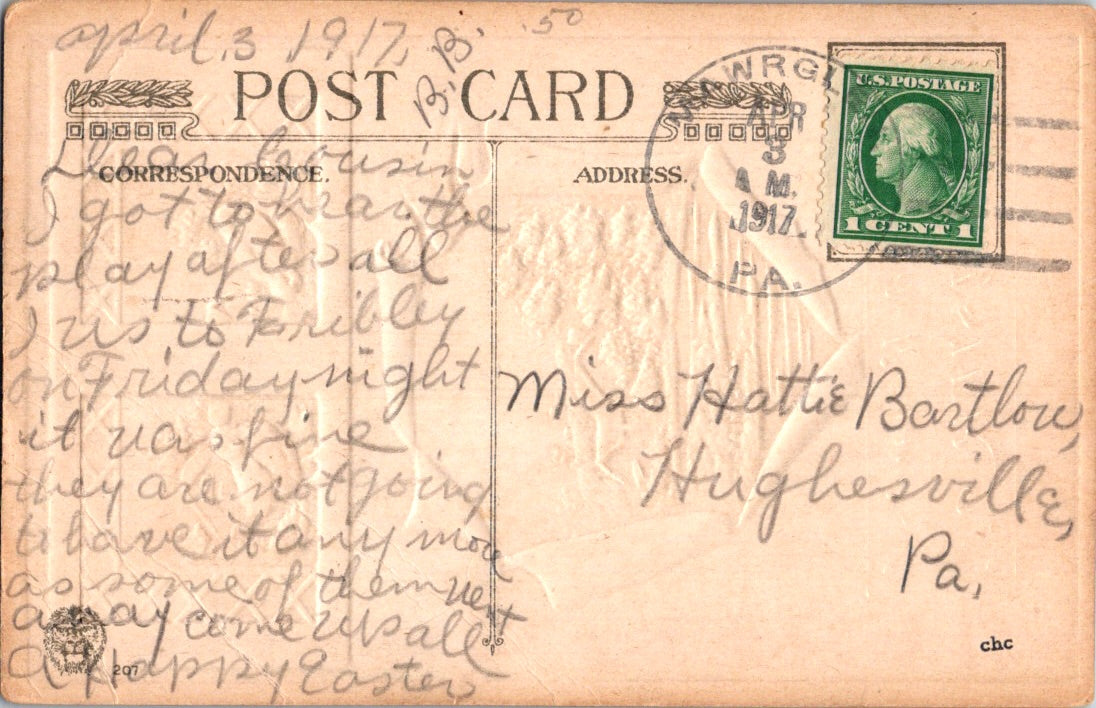 april, 3 1917,
B.B. .50
POST CARD
CORRESPONDENCE.
ADDRESS.
APR
3
A M.
1917.
PA.
U.S. POSTAGE
1 CENT 1
Dear Cousin
I got to hear the
play after all
I us to Fribley
on Friday night
it vas fine
they are not going
to have it any more
as some of them vent
away come up all
A Happy Easter
Miss Hattie Bartlow,
Hughesville,
Pa,
207
chc